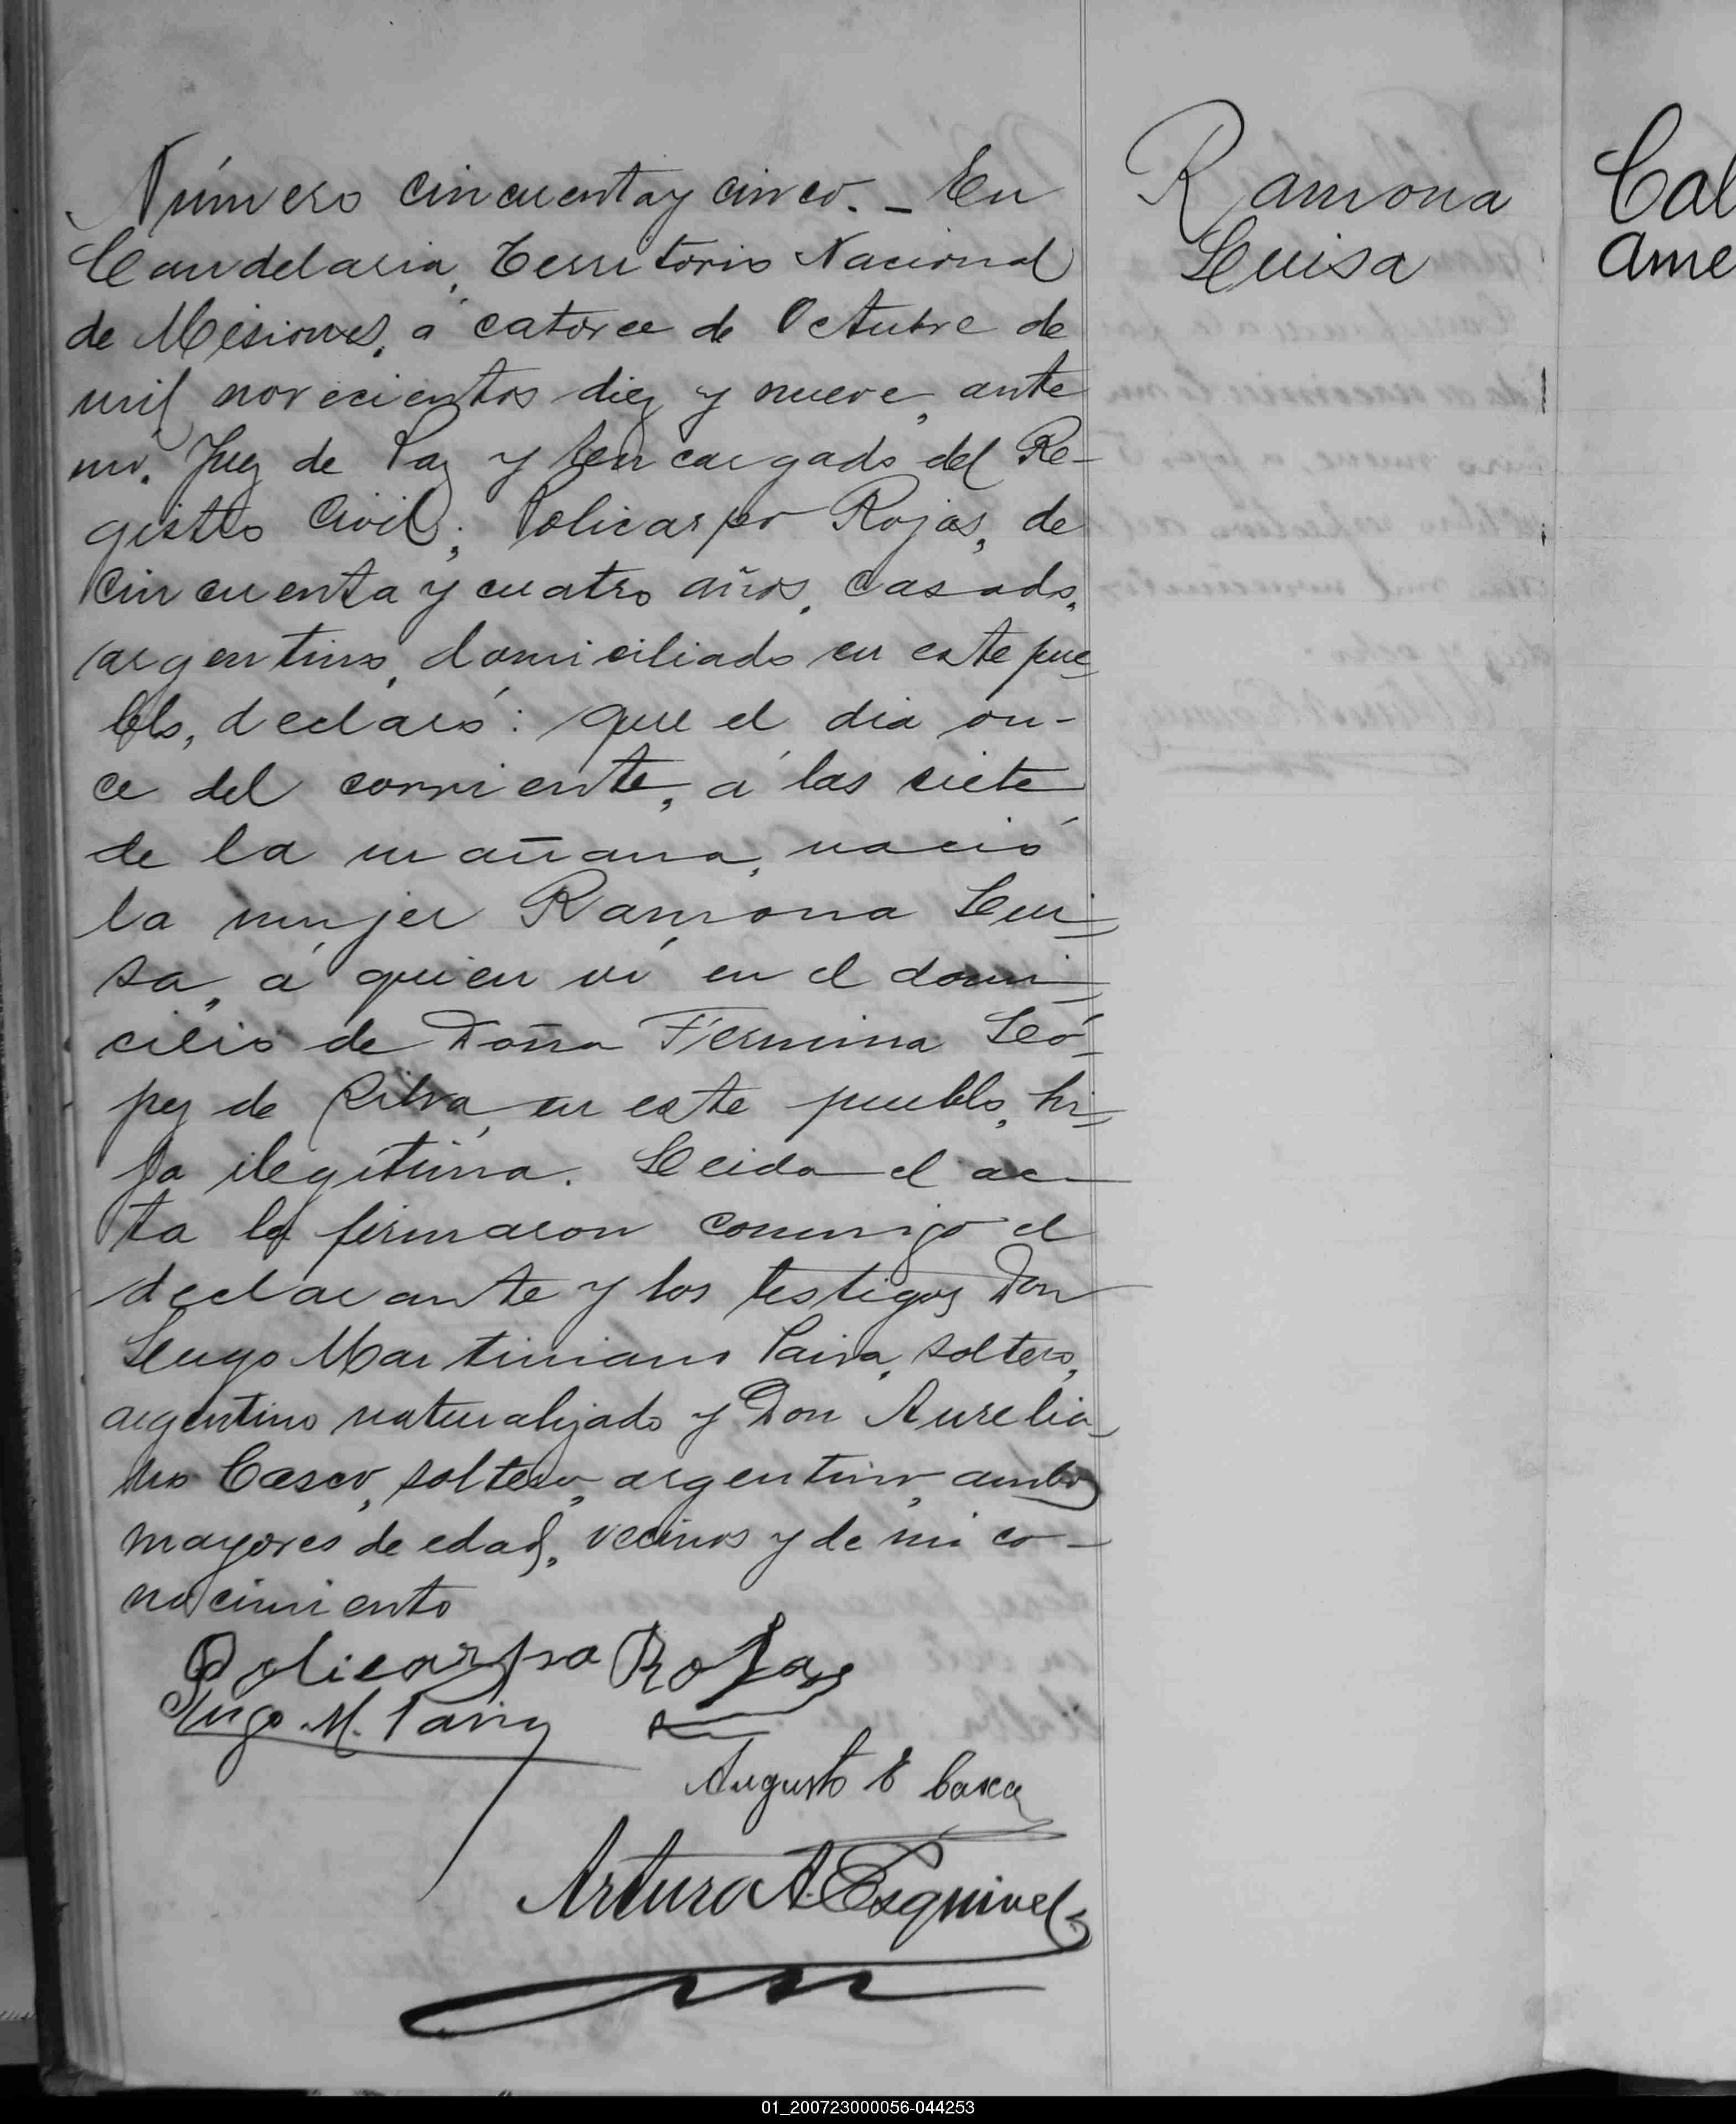 Número cincuenta y cinco. - En
Candelaria, Territorio Nacional
de Misiones, á catorce de Octubre de
mil novecientos diez y nueve, ante
mí. Juez de Paz y Encargado del Re-
gistro Civil; Policarpo Rojas, de
cincuenta y cuatro años, casado,
argentino, domiciliado en este pue
blo, declaró: que el dia on-
ce del corriente, á las siete
de la mañana, nació
la mujer Ramona Lui
sa, á quien ví en el domi
cilio de Doña Fermina Ló
pez de Silva, en este pueblo, hi
ja ilegítima. Leida el ac-
ta la firmaron conmigo el
declarante y los testigos Don
Lugo Martiniano Paiva, soltero,
argentino naturalizado y Don Aurelia
no Casco, soltero, argentino, ambos
mayores de edad, vecinos y de mi co-
nocimiento
Policarpo Rojas
Lugo M. Paiva
Augusto E Casco
Arturo A. Esquivel
Ramona
Luisa
Cal
Ame
01_200723000056-044253